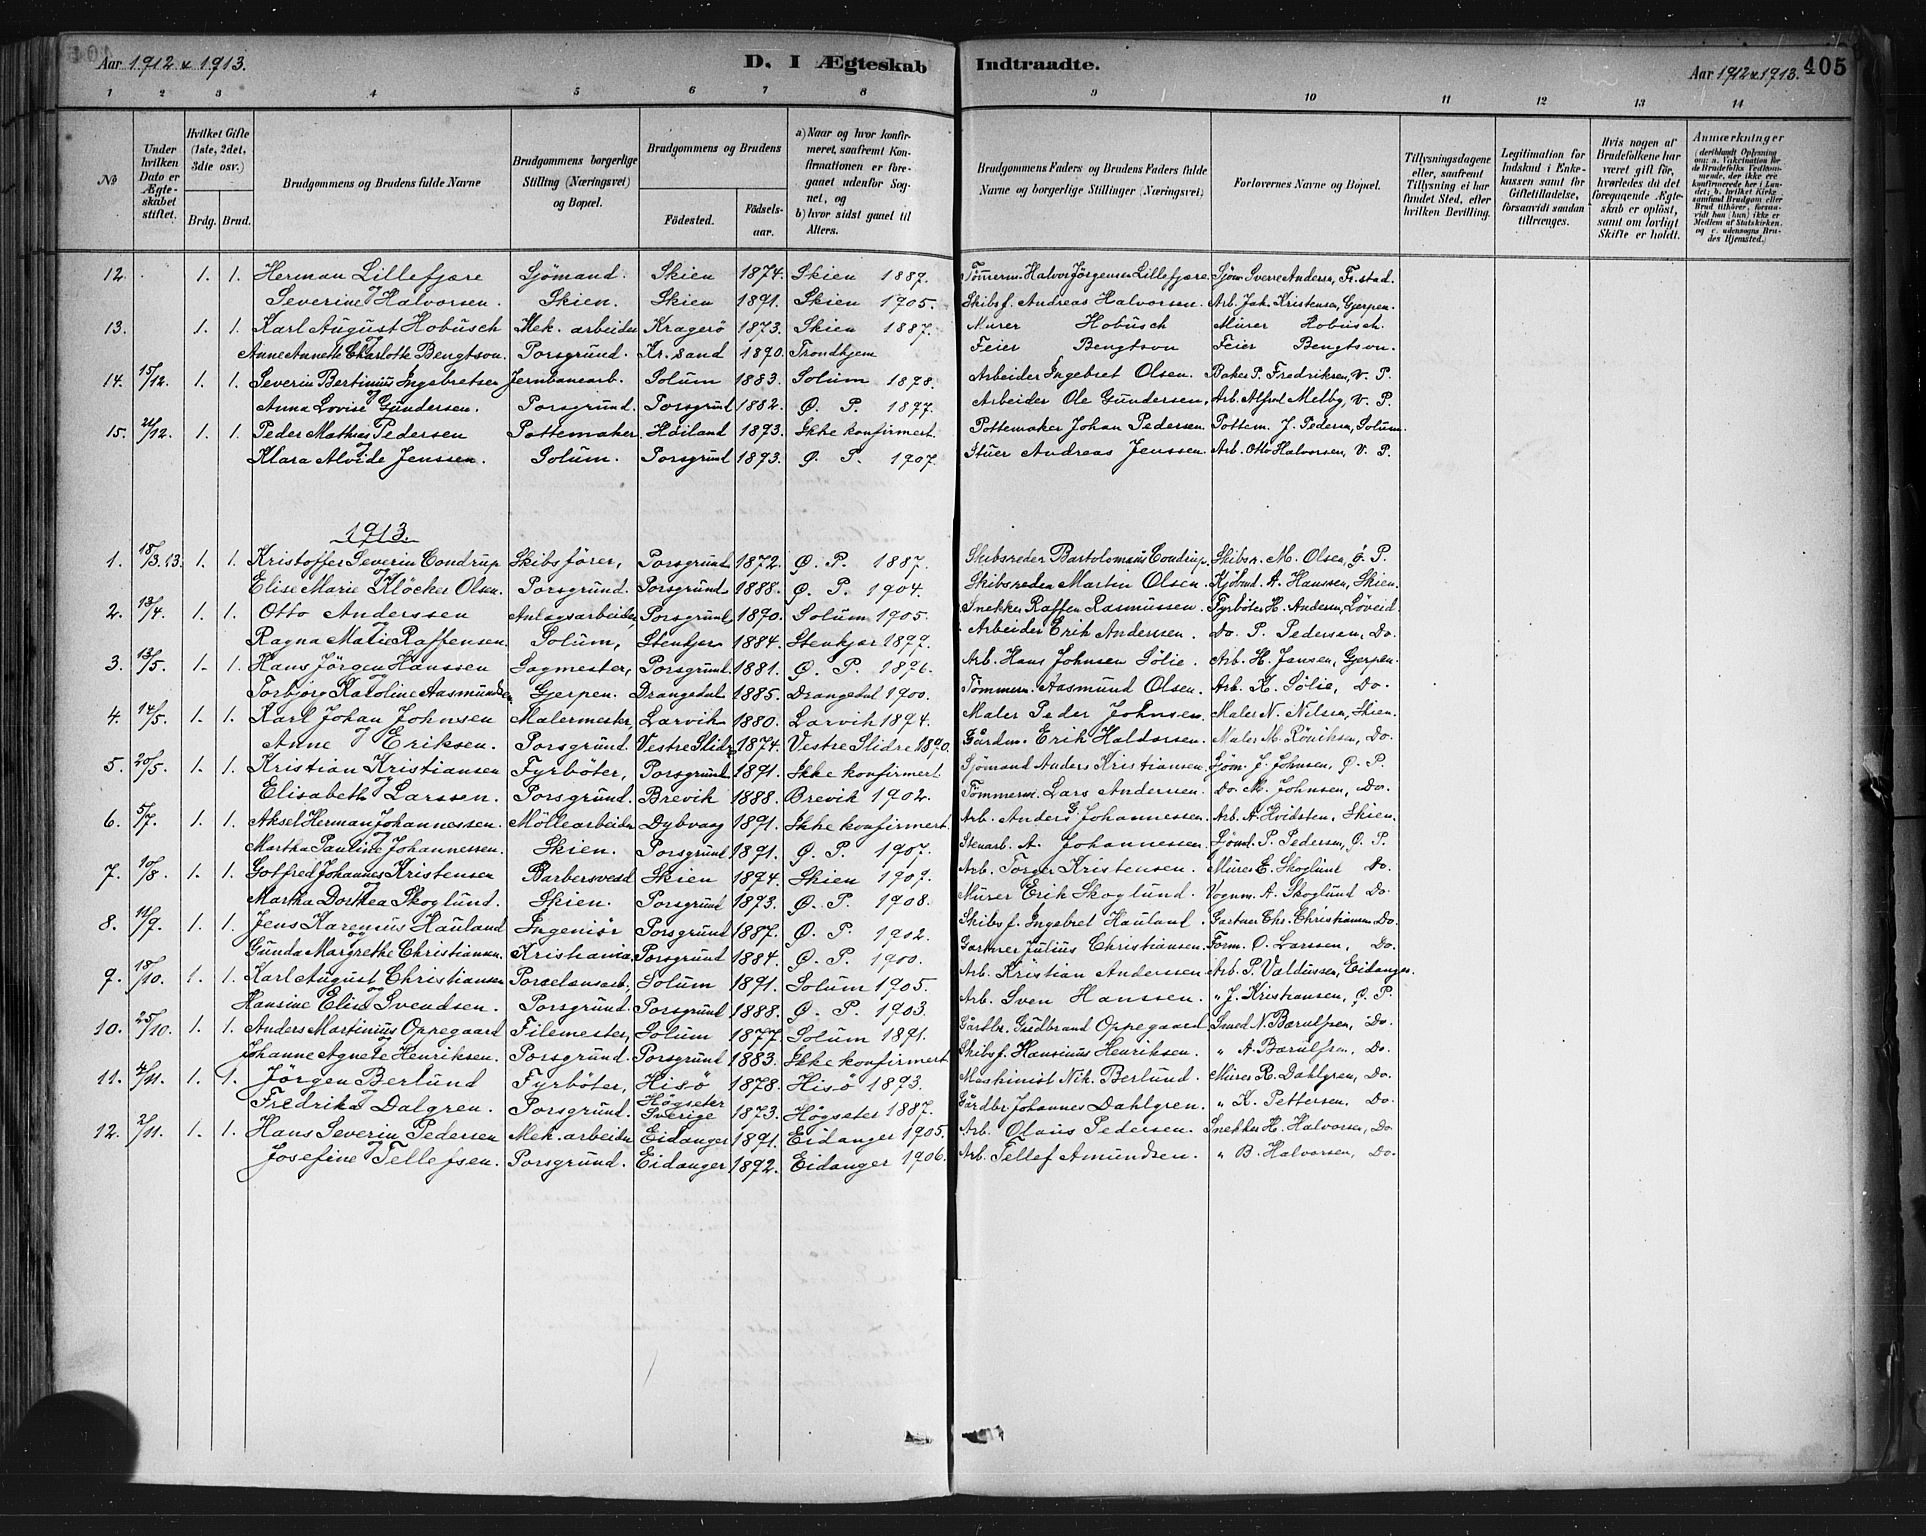 Aar 1912 & 1913. D. I Ægteskab Indtraadte. Aar 1912 & 1913. 405
1 2 3 4 5 6 7 8 9 10 11 12 13 14
No
Under hvilken Dato er Ægteskabet stiftet.
Hvilket Gifte (1ste, 2det, 3die osv.)
Brdg. Brud.
Brudgommens og Brudens fulde Navne
Brudgommens borgerlige Stilling (Næringsvei) og Bopæl.
Brudgommens og Brudens
Fødested. Fødselsaar.
a) Naar og hvor konfirmeret, saafremt Konfirmationen er foregaaet udenfor Sognet, og b) hvor sidst gaaet til Alters.
Brudgommens Faders og Brudens Faders fulde Navne og borgerlige Stillinger (Næringsvei)
Forlovernes Navne og Bopæl.
Tillysningsdagene eller, saafremt Tillysning ei har fundet Sted, efter hvilken Bevilling.
Legitimation for Indskud i Enkekassen samt for Giftetilladelse, forsaavidt saadan tiltrænges.
Hvis nogen af Brudefolkene har været gift før, hvorledes da det foregaaende Ægteskab er opløst, samt om lovligt Skifte er holdt.
Anmærkninger (deriblandt Oplysning om: a. Vakcination for de Brudefolks Vedkommende, der ikke ere konfirmerede her i Landet; b. hvilket Kirkesamfund Brudgom eller Brud tilhører, forsaavidt han (hun) ikke er Medlem af Statskirken, og c. udensogns Brudes Hjemsted.)
12. 1. 1. Herman Lillefjære Sjömand. Skien 1874. Skien 1889. Tömmerm. Halvor Jörgensen Lillefjære. Sjöm. Sverre Andersen, Fr.stad.
og Severine Halvorsen. Skien. Skien 1891. Skien 1905. Skibsf. Andreas Halvorsen Arb. Joh. Kristensen, Gjerpen.
13. 1. 1. Karl August Hobusch Mek. arbeider Kragerö 1873. Skien 1887. Murer Hobusch Murer Hobusch.
og Anne Annette Charlotte Bengtson. Porsgrund. Kr. sand 1890. Trondhjem Feier Bengtson Feier Bengtson.
14. 15/12. 1. 1. Severin Bertinius Ingebretsen Jernbanearb. Solum 1883. Solum 1898. Arbeider Ingebret Olsen. Baker P. Fredriksen, V. P.
og Anna Lovise Gundersen. Porsgrund. Porsgrund 1882. Ø. P. 1897. Arbeider Ole Gundersen, Arb. Alfred Melby, V. P.
15. 21/12. 1. 1. Peder Mathias Pedersen Pottemaker Höiland 1893. Ikke konfirmert. Pottemaker Johan Pedersen Pottem. J. Pedersen, Solum.
og Klara Alvide Jenssen. Solum. Porsgrund 1893. Ø. P. 1907. Stuer Andreas Jenssen. Arb. Otto Halvorsen, V. P.
1913.
1. 18/3. 13. 1. 1. Kristoffer Severin Condrup Skibsfører, Porsgrund 1872. Ø. P. 1887. Skibsreder Bartolomæus Condrup. Skibsr. M. Olsen, Ø. P.
og Elise Marie Klöcker Olsen. Porsgrund. Porsgrund 1888. Ø. P. 1904. Skibsreder Martin Olsen. Kjöbmd. A. Hanssen, Skien.
2. 13/4. 1. 1. Otto Anderssen Anlægsarbeider, Porsgrund 1890. Solum 1905. Snekker Raffen Rasmussen. Fyrböter H. Andersen, Löveid.
og Ragna Matie Raffensen. Solum, Stenkjær 1884. Stenkjær 1899. Arbeider Erik Andersen. Do. P. Pedersen, Do.
3. 13/5. 1. 1. Hans Jörgen Hanssen Sagmester, Porsgrund. 1881. Ø. P. 1896. Arb. Hans Johnsen Sölie. Arb. H. Jansen, Gjerpen.
og Torbjörg Karoline Aasmundsen Gjerpen. Drangedal 1885. Drangedal 1900. Tömmerm. Aasmund Olsen. Arb. K. Sölie, Do.
4. 14/5. 1. 1. Karl Johan Johnsen Malermester, Larvik 1880. Larvik 1894. Maler Peder Johnsen. Maler N. Nilsen, Skien.
og Anne Eriksen. Porsgrund. Vestre Slidre 1874. Vestre Slidre 1890. Gårdm. Erik Haldorsen. Maler M. Röniksen, Do.
5. 20/5. 1. 1. Kristian Kristiansen Fyrböter, Porsgrund 1891. Ikke konfirmert. Sjömand Anders Kristiansen. Sjöm. J. Johnsen, Ø. P.
og Elisabeth Larssen. Porsgrund. Brevik 1888. Brevik 1902. Tömmerm. Lars Andersen. Do. M. Johnsen, Do.
6. 5/7. 1. 1. Aksel Herman Johannessen. Möllearbeider Dybvaag 1891. Ikke konfirmert. Arb. Anders G. Johannessen. Arb. A. Hvidsten, Skien.
og Martha Pauline Johannessen. Skien. Porsgrund 1891. Ø. P. 1907. Stenarb. A. Johannessen. Sjömd. P. Pedersen, Ø. P.
7. 10/8. 1. 1. Gotfred Johannes Kristensen Barbersvend Skien 1894. Skien 1909. Arb. Torger Kristensen. Murer E. Skoglund Do.
og Martha Dorthea Skoglund. Skien. Porsgrund 1893. Ø. P. 1908. Murer Erik Skoglund. Vognm. A. Skoglund Do.
8. 11/9. 1. 1. Jens Karenius Hauland Ingeniör Porsgrund 1887. Ø. P. 1902. Skibsf. Ingebret Hauland. Gartner Chr. Christiansen Do.
og Gunda Margrethe Christiansen. Kristiania. Porsgrund 1884. Ø. P. 1900. Gartner Julius Christiansen. Form. O. Larssen, Do.
9. 18/10. 1. 1. Karl August Christiansen Porcelænsarb, Solum 1891. Solum 1905. Arb. Kristian Andersen Arb. P. Valdussen, Eidanger.
og Hansine Elise Svendsen. Porsgrund. Porsgrund 1888. Ø. P. 1903. Arb. Sven Hanssen. " J. Kristiansen, Ø. P.
10. 25/10. 1. 1. Anders Martinius Oppegaard Filemester, Solum 1877. Solum 1891. Gårdbr. Gudbrand Oppegaard Smed N. Bærulfsen, Do.
og Johanne Agnete Henriksen. Porsgrund. Porsgrund 1883. Ikke konfirmert Skibsf. Hansinus Henriksen. " A. Bærulfsen, Do.
11. 4/11. 1. 1. Jörgen Berlund Fyrböter, Hisö 1878. Hisö 1893. Maskinist Nik. Berlund. Murer R. Dahlgren, Do.
og Fredrika Dalgren. Porsgrund. Högseter Sverige 1873. Högseter 1887. Gårdbr. Johannes Dahlgren. " K. Pettersen, Do.
12. 2/11. 1. 1. Hans Severin Pedersen Mek. arbeider Eidanger 1891. Eidanger 1905. Arb. Olaus Pedersen. Snekker H. Halvorsen, Do.
og Josefine Tellefsen. Porsgrund. Eidanger 1892. Eidanger 1906. Arb. Tellef Amundsen. " B. Halvorsen, Do.